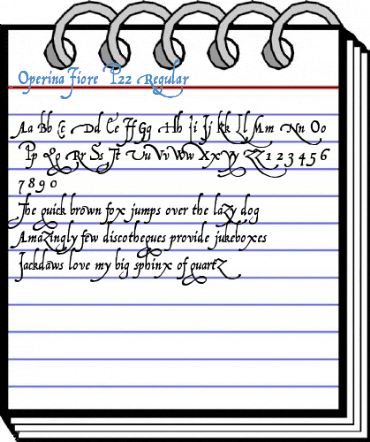 Operina Fiore P22 Regular
Aa Bb Cc Dd Ee Ff Gg Hh Ii Jj Kk Ll Mm Nn Oo
Pp Qq Rr Ss Tt Uu Vv Ww Xx Yy Zz 1 2 3 4 5 6
7 8 9 0
The quick brown fox jumps over the lazy dog
Amazingly few discotheques provide jukeboxes
Jackdaws love my big sphinx of quartz